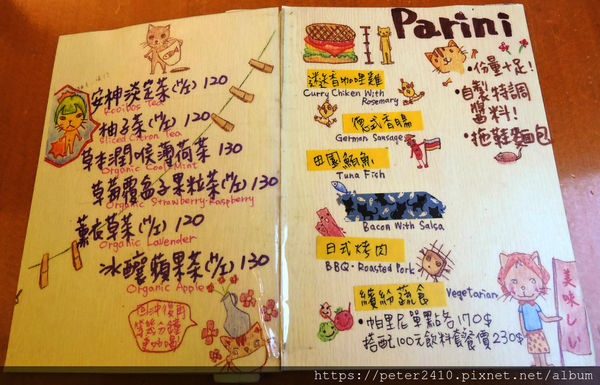 安神淡定茶(H/I) 120
Rooibos Tea
柚子茶(H/I) 120
Sliced Citron Tea
草本潤喉薄荷茶 130
Organic Cool Mint
草莓覆盆子果粒茶(H/I) 130
Organic Strawberry-Raspberry
薰衣草茶(H/I) 120
Organic Lavender
冰釀蘋果茶(H/I) 130
Organic Apple
回沖後用
等幾分鐘
Parini
迷迭香咖哩雞
Curry Chiken With
Rosemary
德式香腸
German Sausage
田園鮪魚
Tuna Fich
Bacon With Salsa
日式烤肉
BBQ-Roasted Pork
繽紛蔬食
Vegetarian
•帕里尼單點各170$
搭配100元飲料套餐價230$
•份量十足!
•自製特調
醬料!
•拖鞋麵包
美味しい
https://peter2410.pixnet.net/album